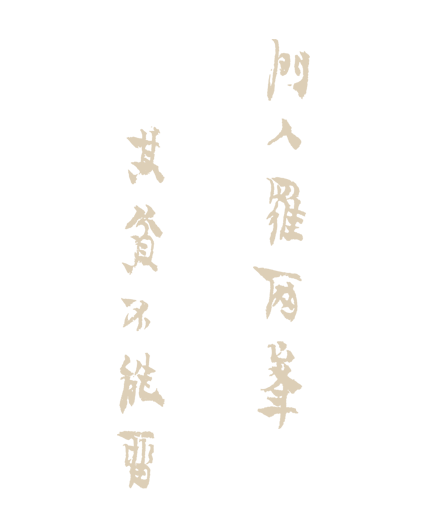 門人羅兩峯
其貧不能畱